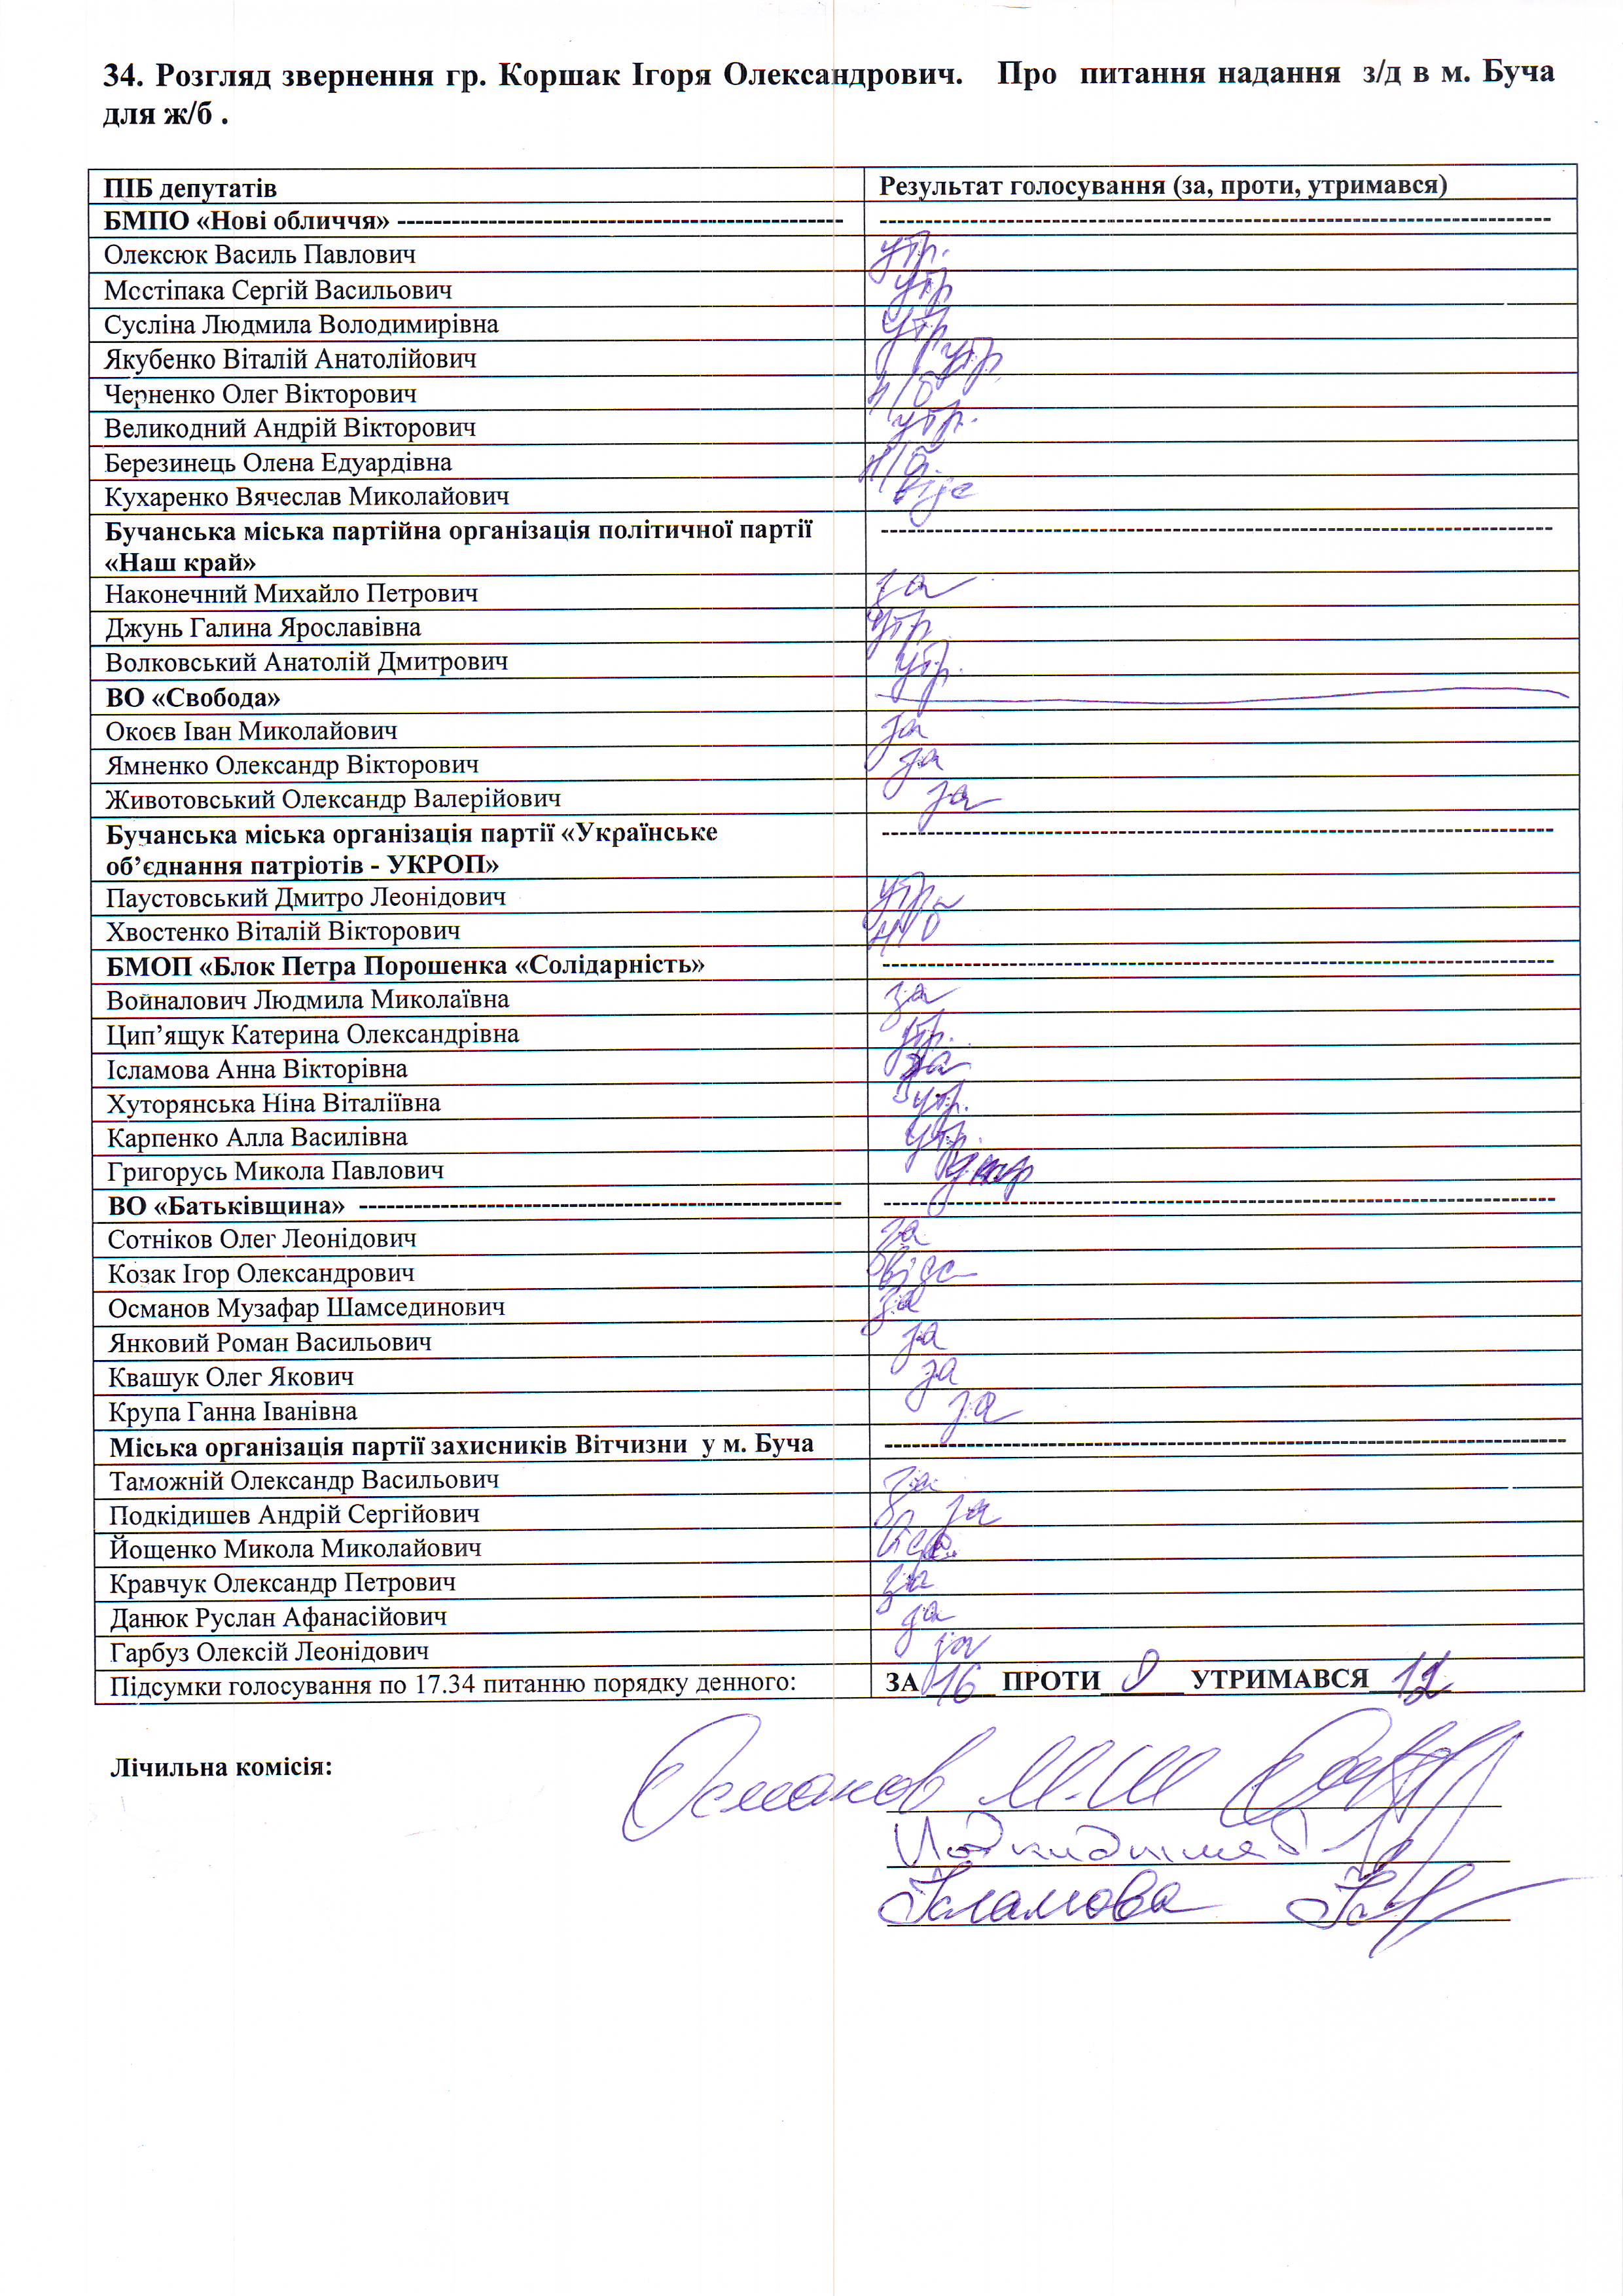 34. Розгляд звернення гр. Коршак Ігоря Олександрович. Про питання надання з/д в м. Буча
для ж/б .
ПІБ депутатів Результат голосування (за, проти, утримався)
БМПО «Нові обличчя» ------------------------------------------------- --------------------------------------------------------------------------
Олексюк Василь Павлович утр.
Мостіпака Сергій Васильович утр
Сусліна Людмила Володимирівна утр
Якубенко Віталій Анатолійович утр.
Черненко Олег Вікторович н/б
Великодний Андрій Вікторович утр.
Березинець Олена Едуардівна н/б
Кухаренко Вячеслав Миколайович відс
Бучанська міська партійна організація політичної партії --------------------------------------------------------------------------
«Наш край»
Наконечний Михайло Петрович за
Джунь Галина Ярославівна утр
Волковський Анатолій Дмитрович утр.
ВО «Свобода»
Окоєв Іван Миколайович за
Ямненко Олександр Вікторович за
Животовський Олександр Валерійович за
Бучанська міська організація партії «Українське --------------------------------------------------------------------------
об’єднання патріотів - УКРОП»
Паустовський Дмитро Леонідович утр
Хвостенко Віталій Вікторович н/б
БМОП «Блок Петра Порошенка «Солідарність» --------------------------------------------------------------------------
Войналович Людмила Миколаївна за
Цип’ящук Катерина Олександрівна утр.
Ісламова Анна Вікторівна за
Хуторянська Ніна Віталіївна утр.
Карпенко Алла Василівна утр.
Григорусь Микола Павлович утр
ВО «Батьківщина» ----------------------------------------------------- --------------------------------------------------------------------------
Сотніков Олег Леонідович за
Козак Ігор Олександрович відс
Османов Музафар Шамсединович за
Янковий Роман Васильович за
Квашук Олег Якович за
Крупа Ганна Іванівна за
Міська організація партії захисників Вітчизни у м. Буча ---------------------------------------------------------------------------
Таможній Олександр Васильович за
Подкідишев Андрій Сергійович за
Йощенко Микола Миколайович
Кравчук Олександр Петрович за
Данюк Руслан Афанасійович за
Гарбуз Олексій Леонідович за
Підсумки голосування по 17.34 питанню порядку денного: ЗА 16 ПРОТИ 0 УТРИМАВСЯ 12
Лічильна комісія:
Османов М.Ш
Ісламова